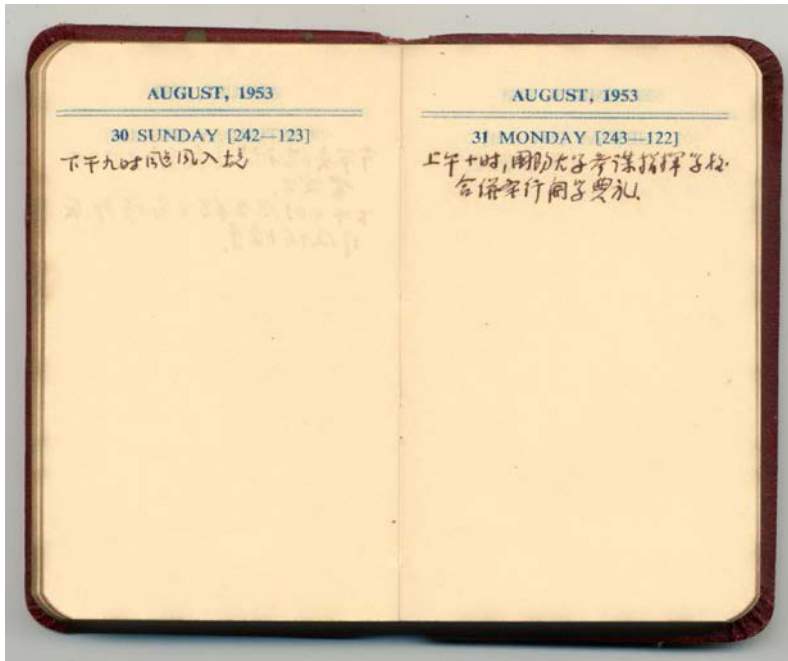 AUGUST, 1953
30 SUNDAY [242—123]
下午九时 风入境
AUGUST, 1953
31 MONDAY [243—122]
上午十时,国防大学参谋指挥学校
合併举行开学典礼.